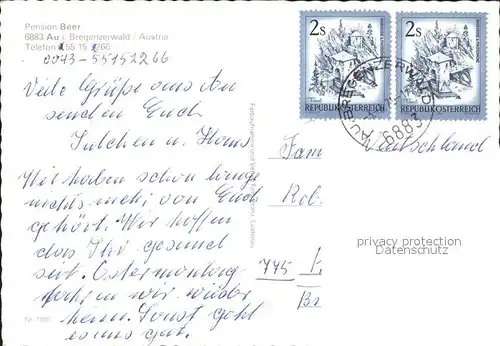 Pension Beer
6883 Au i. Bregenzerwald / Austria
Telefon 55 15 266
0043-55152266
Viele Grüße aus Au
senden Euch
Julchen u. Hans
Wir haben schon lange
nichts mehr von Euch
gehört. Wir hoffen
das Ihr gesund
seit. Ostermontag
fahren wir wieder
heim. Sonst geht
es uns gut.
2s
REPUBLIK ÖSTERREICH
2s
REPUBLIK ÖSTERREICH
AU, BREGENZERWALD
6883
Fam
Deutschland
Rob.
775
privacy protection
Datenschutz